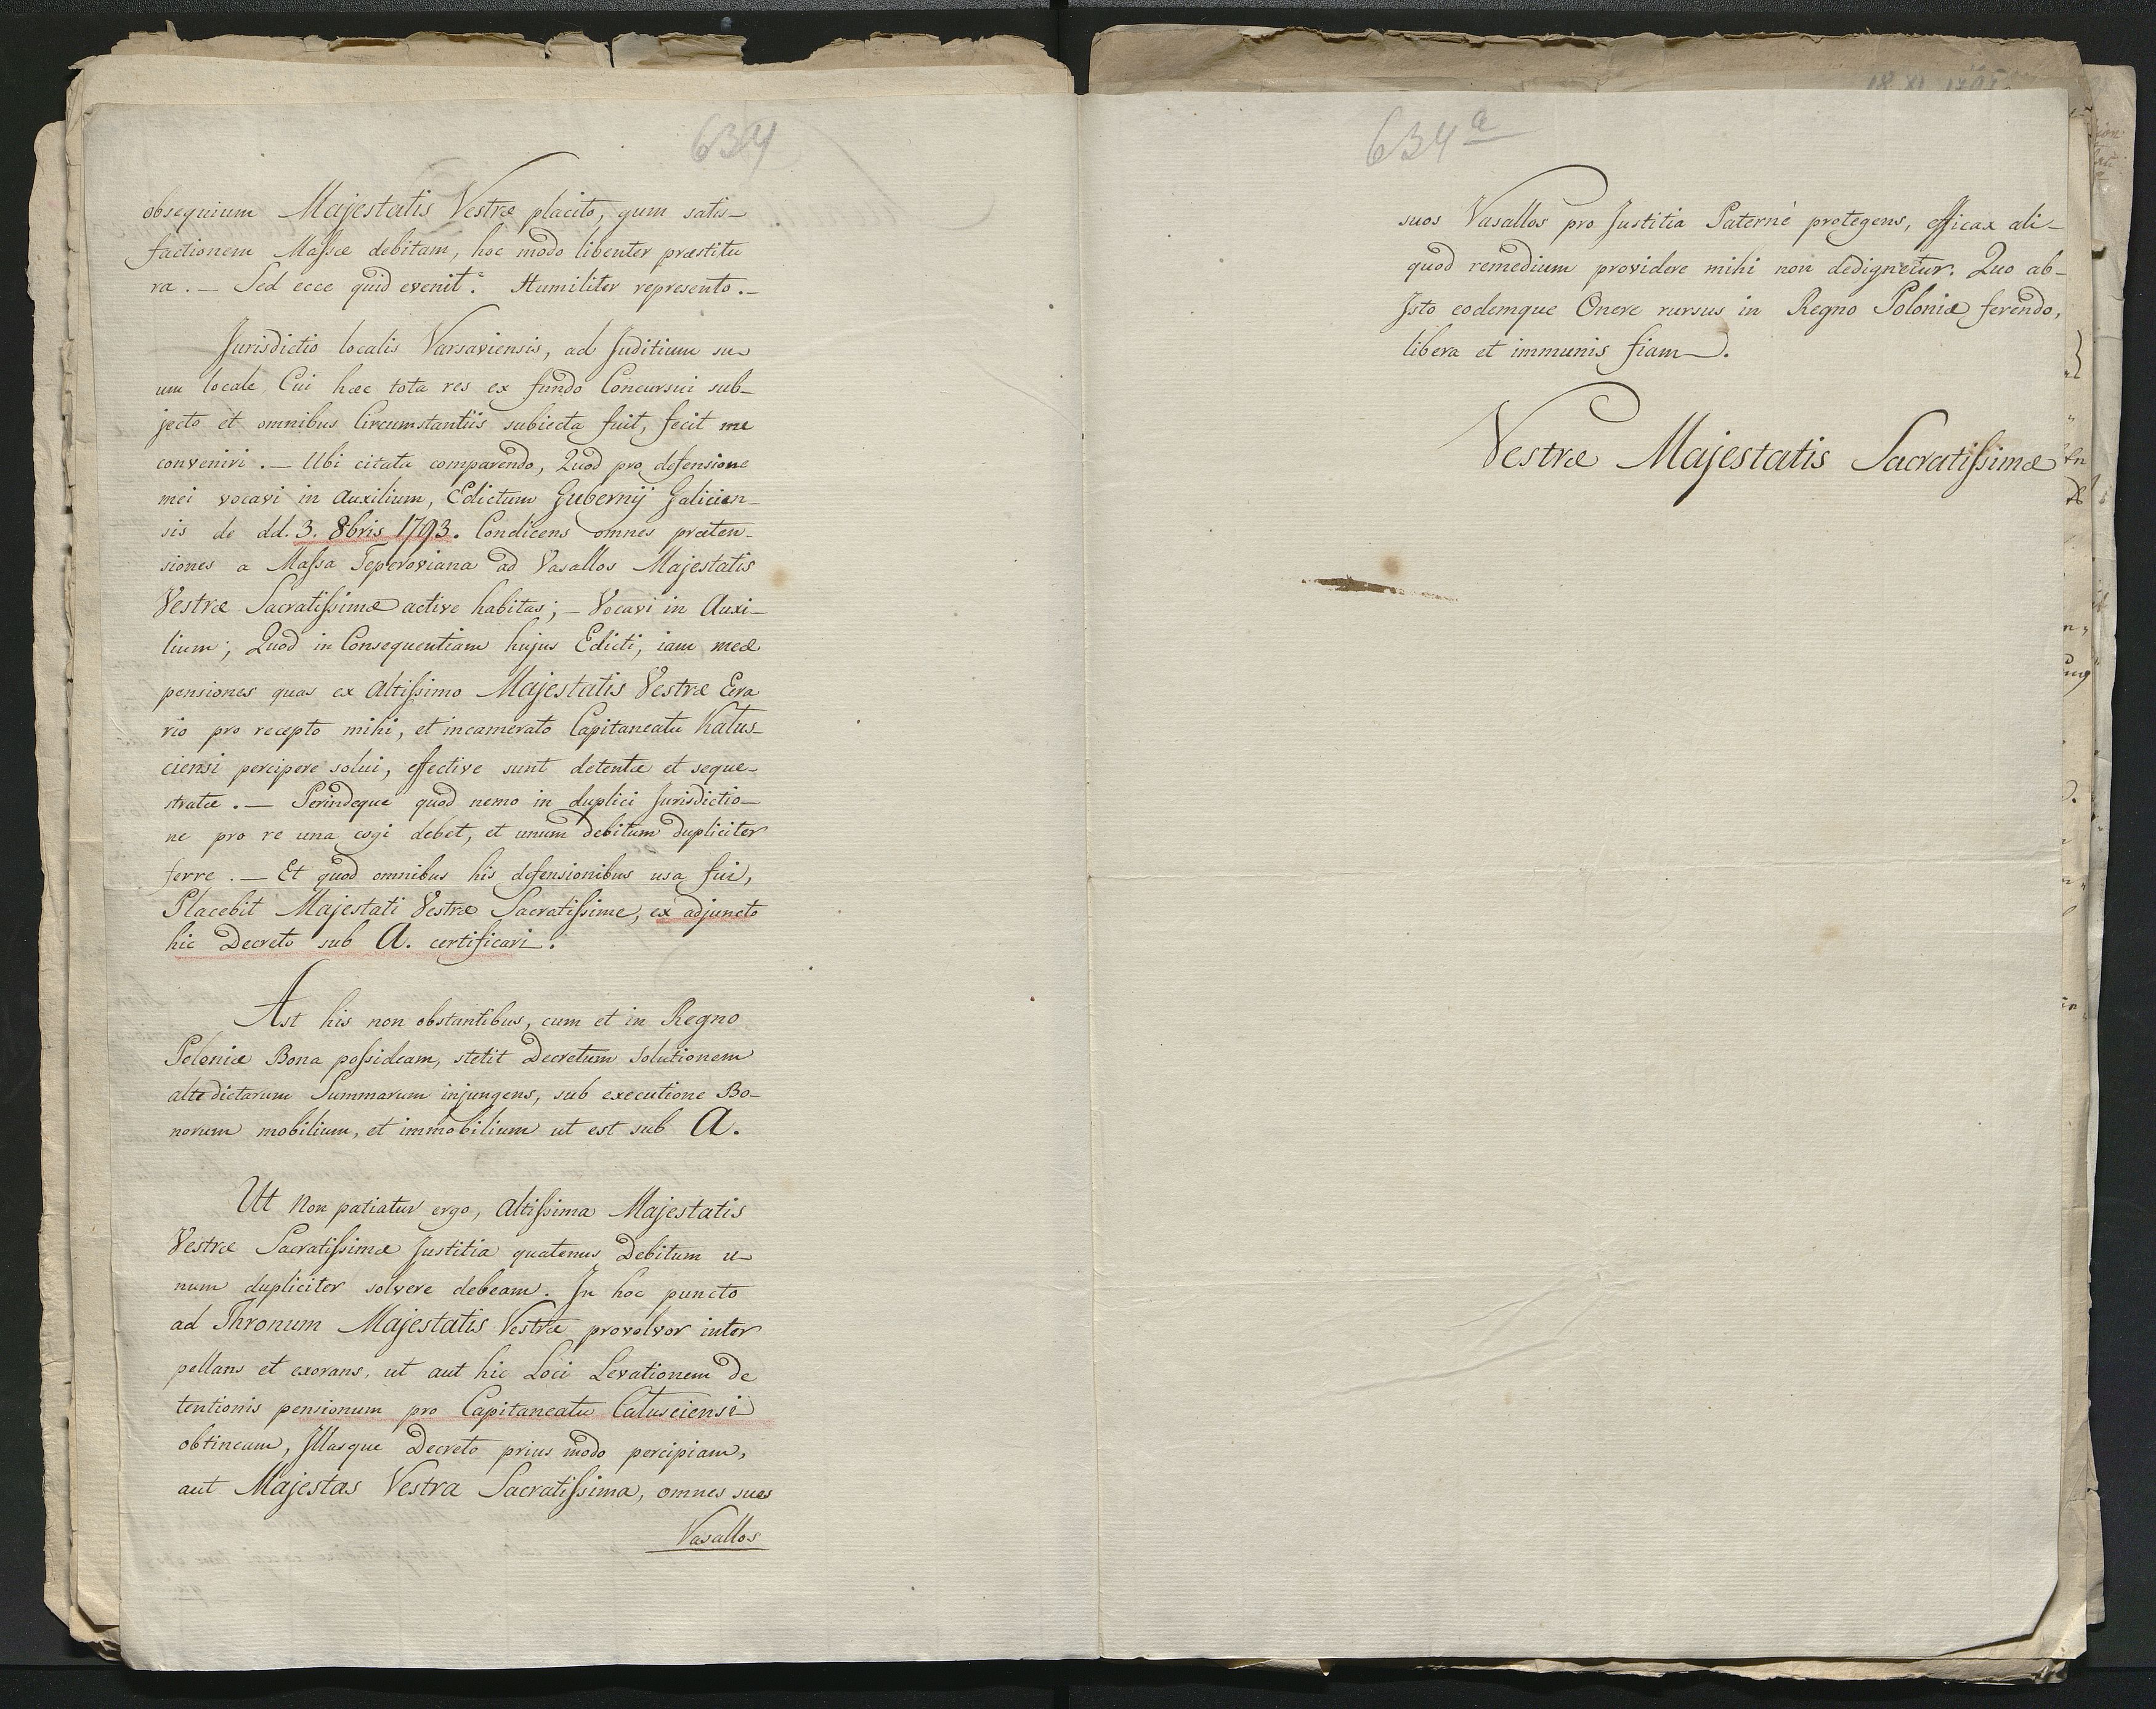 634
obsequium Majestatis Vestræ placito, qum satis-
factionem Maſsæ debitam, hoc modo libenter præstitu
ra. — Sed ecce quid evenit: Humiliter represento. —
Jurisdictio localis Varsaviensis, ad Juditium su-
um locale, Cui hæc tota res ex fundo Concursui sub-
jecto et omnibus Circumstantiis subiecta fuit, fecit me
conveniri. — Ubi citata comparendo, Quod pro defensione
mei vocavi in auxilium, Edictum Gubernij Galicien-
sis de dd. 3. 8bris 1793. Condicens omnes præten-
siones a Maſsa Teperoviana ad Vasallos Majestatis
Vestræ Sacratiſsimæ active habitas; — Vocavi in Auxi-
lium; Quod in Consequentiam hujus Edicti, iam meæ
pensiones quas ex altiſsimo Majestatis Vestræ Eera
rio pro recepto mihi, et incamerato Capitaneatu Kalus-
ciensi percipere solui, effective sunt detentæ et seque-
stratæ. — Perindeque quod nemo in duplici Jurisdictio-
ne pro re una cogi debet, et unum debitum dupliciter
ferre. — Et quod omnibus his defensionibus usa fui,
Placebit Majestati Vestræ Sacratiſsime, ex adjuncto
hic Decreto sub A. certificari.
Ast his non obstantibus, cum et in Regno
Poloniæ Bona poſsideam, stetit Decretum solutionem
alte dictarum Summarum injungens, sub executione Bo-
norum mobilium, et immobilium ut est sub A.
Ut Non patiatur ergo, altiſsima Majestatis
Vestræ Sacratiſsimæ Justitia quatenus Debitum u-
num dupliciter solvere debeam. In hoc puncto
ad Thronum Majestatis Vestræ provolvor inter
pellans et exorans, ut aut hic Loci Levationem De
tentionis pensionum pro Capitaneatu Calusciensi
obtineam, Illasque Decreto prius modo percipiam,
aut Majestas Vestra Sacratiſsima, omnes suos
Vasallos
634a
suos Vasallos pro Justitia Paternè protegens, efficax ali-
quod remedium providere mihi non dedignetur. Quo ab-
Isto eodemque Onere rursus in Regno Poloniæ ferendo,
libera et immunis fiam.
Vestræ Majestatis Sacratiſsimæ